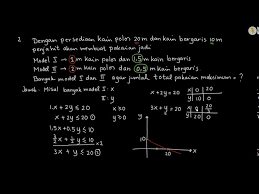 2. Dengan persediaan kain polos 20 m dan kain bergaris 10 m
penjahit akan membuat pakaian jadi
Model I → 1 m kain polos dan 1,5 m kain bergaris
Model II → 2 m kain polos dan 0,5 m kain bergaris
Banyak model I dan II agar jumlah total pakaian maksimum = ?
Jawab : Misal banyak model I : x
II : y
1.x + 2y ≤ 20
x + 2y ≤ 20 ①
x ≥ 0
y ≥ 0
1,5x + 0,5y ≤ 10
3x + y ≤ 20 ②
x + 2y = 20
x 0 20
y 10 0
3x + y = 20
x 0
y 20 0
y
10
20
x